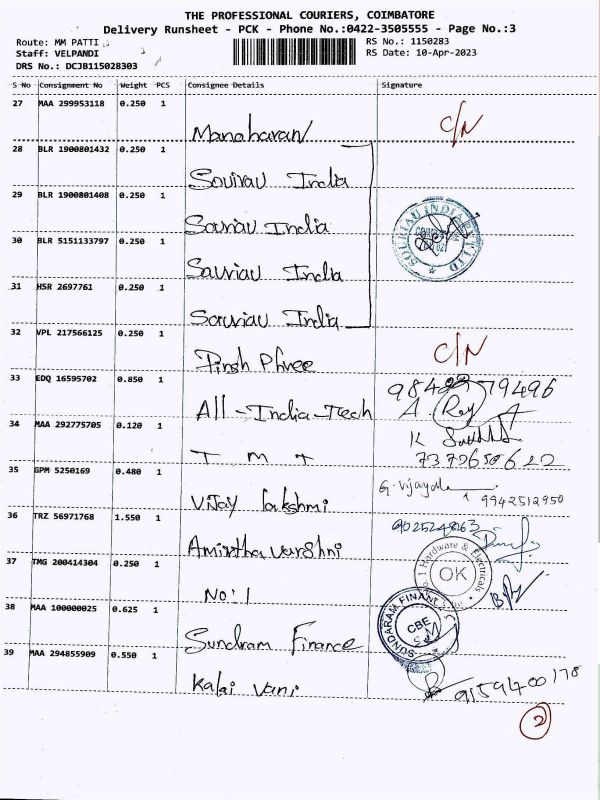 THE PROFESSIONAL COURIERS, COIMBATORE
Delivery Runsheet - PCK - Phone No.:0422-3505555 - Page No.:3
Route: MM PATTI
RS No.: 1150283
Staff: VELPANDI
RS Date: 10-Apr-2023
DRS No.: DCJB115028303
S No Consignment No Weight PCS Consignee Details Signature
27 MAA 299953118 0.250 1 Manoharan C/N
28 BLR 1900801432 0.250 1 Souriau India
29 BLR 1900801408 0.250 1 Souriau India
SOURIAU INDIA PVT LTD
30 BLR 5151133797 0.250 1 Sauriau India
31 HSR 2697761 0.250 1 Souriau India
32 VPL 217566125 0.250 1 C/N
33 EDQ 16595702 0.850 1 All-India-Tech
34 MAA 292775705 0.120 1 T M T
35 GPM 5250169 0.480 1 Vijay lakshmi 9942512950
36 TRZ 56971768 1.550 1 Amirtha varshni
37 TMG 200414304 0.250 1 No:1
No. 1 Hardware & Electricals
OK
38 MAA 100000025 0.625 1 Sundram Finance
SUNDARAM FINANCE
CBE
39 MAA 294855909 0.550 1 Kalai vani 9159400178
2